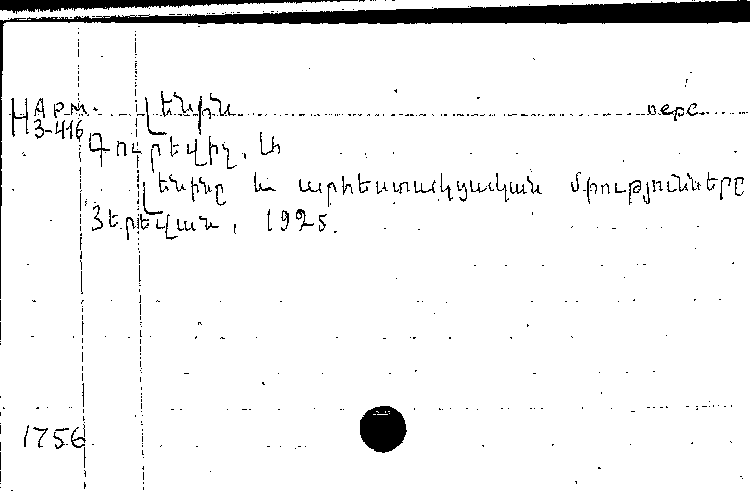 НАрм. Լենին перс.
3-416
Գուրեվիչ, Ա
Լենինը եւ արհեստակցական միությունները
Յերեվան, 1925.
1756